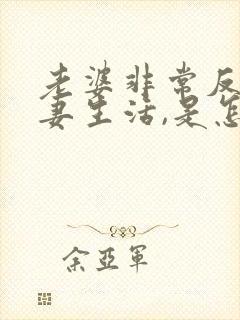 老婆非常反
妻生活,是怎
余亞軍